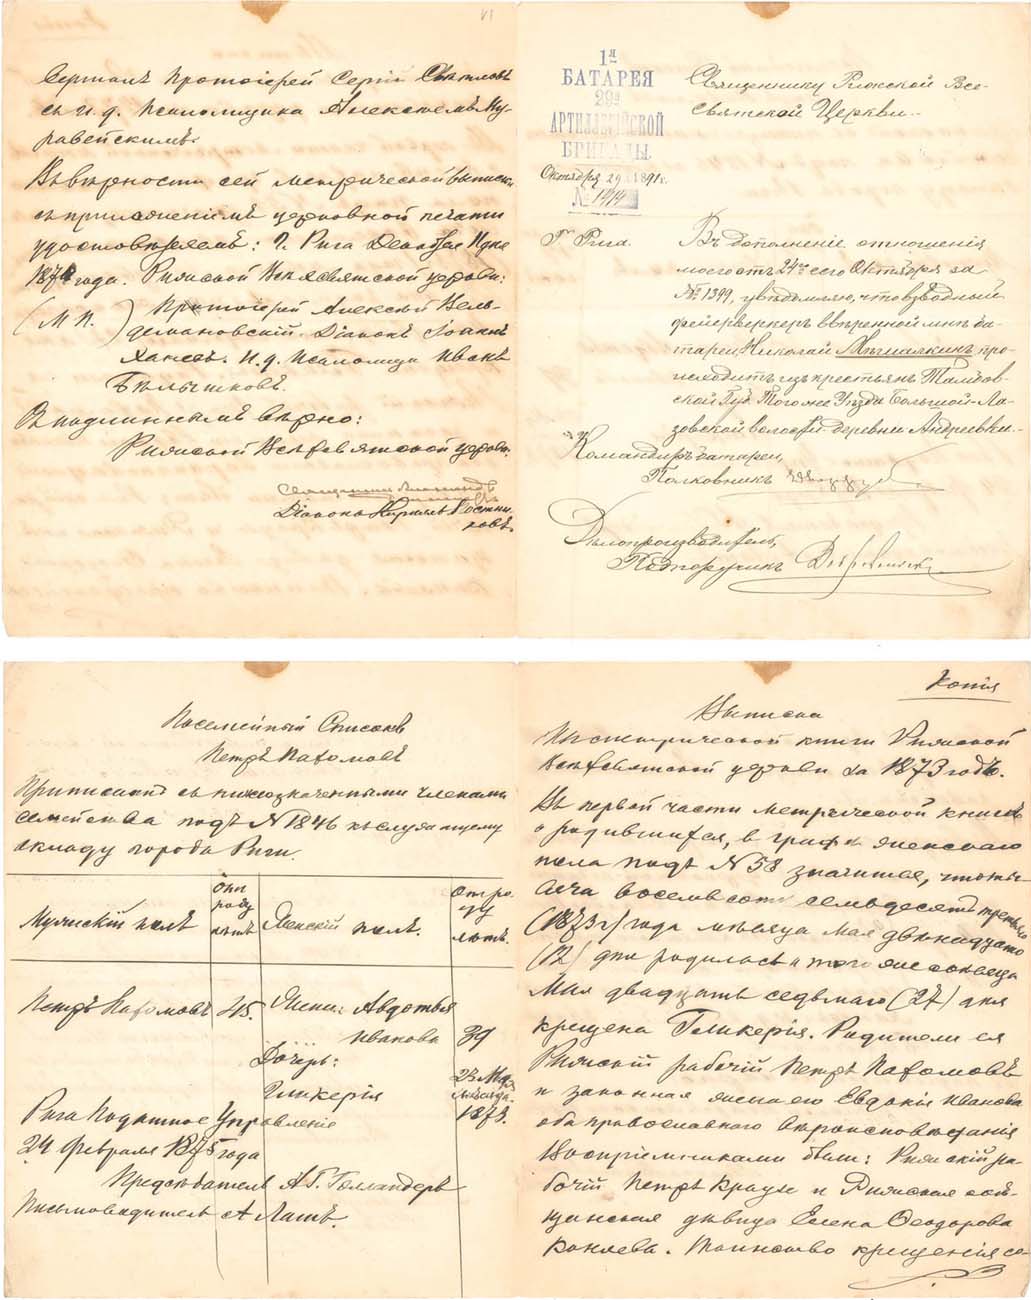 совершалъ Протоіерей Сергій Свѣтловъ
съ и. д. Псаломщика Алексѣемъ Му-
равейскимъ.
Въ вѣрности сей метрической выписи
съ приложеніемъ церковной печати
удостовѣряемъ: Г. Рига Декабря дня
187 года. Рижской Всѣхсвятской церкви:
(М П.) Протоіерей Алексѣй
Діаконъ Іоаннъ
И. д. Псаломщ Иванъ
Бѣльчиковъ.
Съ подлиннымъ вѣрно:
Рижской Всѣхсвятской церкви
Діаконъ Кириллъ
1я
БАТАРЕЯ
29й
АРТИЛЛЕРІЙСКОЙ
БРИГАДЫ.
Октября 29 1891 г.
№ 1414
Г. Рига.
Священнику Рижской Все-
святской Церкви.
Въ дополненіе отношенія
моего отъ 24го сего Октября за
№ 1399, увѣдомляю, что взводный
фейерверкеръ ввѣренной мнѣ ба-
тареи, Николай Мигмалкинъ про-
исходитъ изъ крестьянъ Тамбов-
ской Губ. Того же Уѣзда Большой-Ла-
зовской волости деревни Андреевки.
Командиръ батареи,
Полковникъ
Дѣлопроизводитель,
Подпоручикъ
Посемейный Списокъ
Петръ Пахомовъ
Приписанъ съ нижеозначенными членами
семейства подъ N 1846 къ служащему
окладу города Риги.
Мужескій полъ
Отъ роду лѣтъ
Женскій полъ.
Отъ роду лѣтъ.
Петръ Пахомовъ 45.
Жена: Авдотья
Иванова 39
Дочерь:
Гликерія
1873.
Рига Податное Управленіе
24 Февраля 1875 года
Предсѣдатель А Г. Голландеръ
Письмоводитель А Лашъ.
Копія
Выписка
Изъ метрической книги Рижской
Всѣхсвятской церкви за 1873 годъ.
Въ первой части метрической книги
о родившихся, въ графѣ женскаго
пола подъ N 58 значится, что тыс-
яча восемьсотъ семьдесятъ третьяго
(1873г) года мѣсяца Мая двѣнадцато
(12) дня родилась и того же мѣсяца
Мая двадцать седьмаго (27) дня
крещена Гликерія. Родители ея
Рижскій рабочій Петръ Пахомовъ
и законная жена его Евдокія Иванова
оба православнаго вѣроисповѣданія
Воспріемниками были: Рижскій ра-
бочій Петръ Краузе и Рижская мѣ-
щанская дѣвица Елена Ѳеодорова
Коняева. Таинство крещенія со-